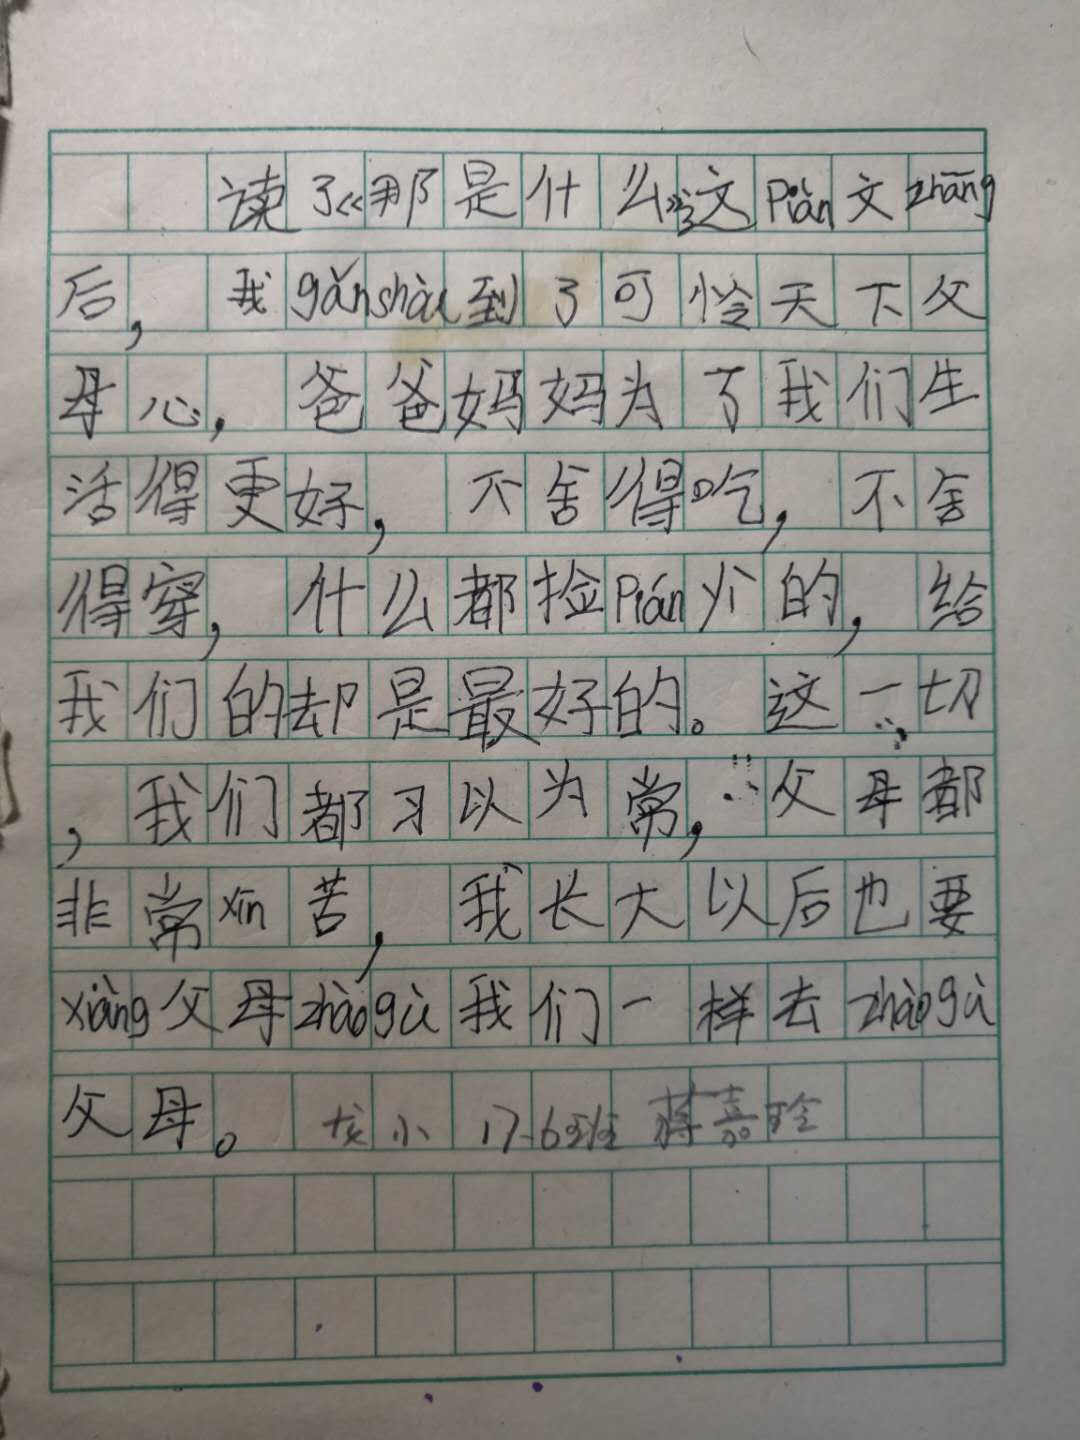 读了《那是什么》这Piān文zhāng
后，我gǎnshòu到了可怜天下父
母心，爸爸妈妈为了我们生
活得更好，不舍得吃，不舍
得穿，什么都捡Pián价的，给
我们的却是最好的。这一切
，我们都习以为常，父母都
非常xīn苦，我长大以后也要
xiàng父母zhàogù我们一样去zhàogù
父母。龙小17.6班 蒋嘉玲